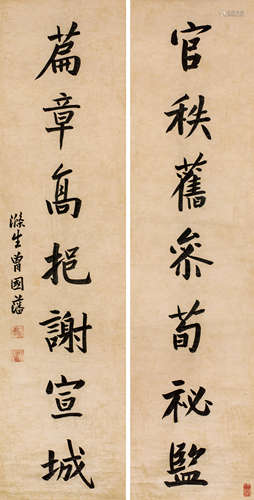 官秩舊參荀祕監
篇章高挹謝宣城
滌生曾國藩